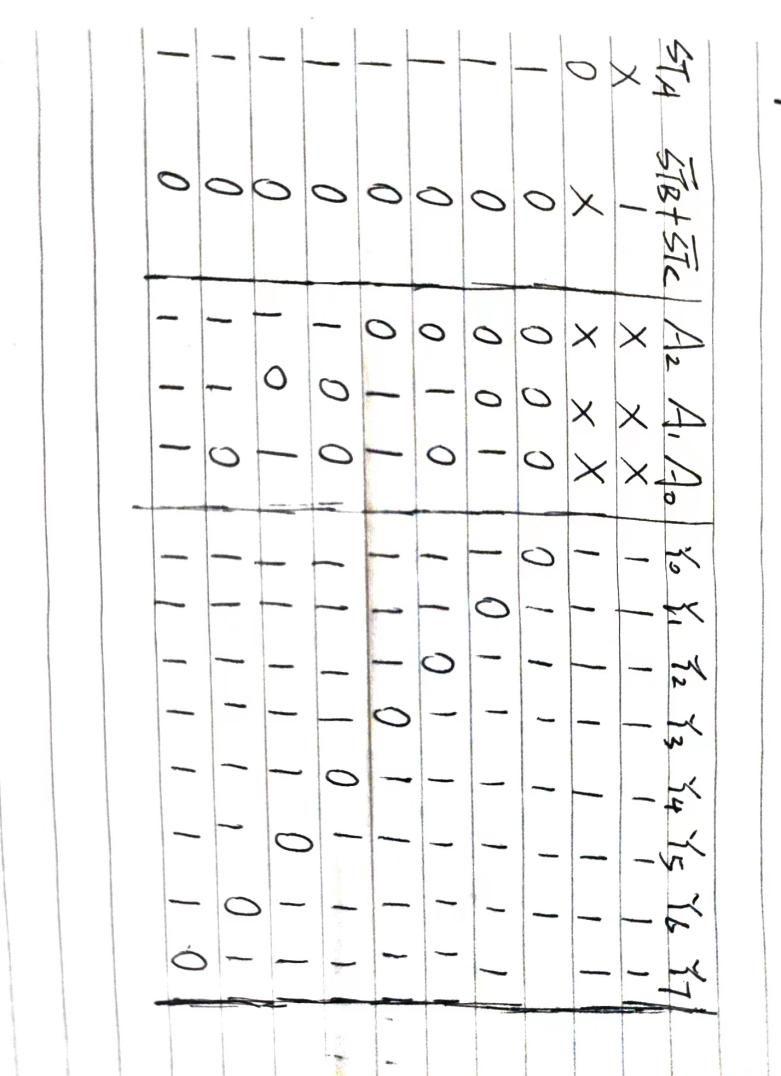 STA S̅T̅B+S̅T̅C A₂ A₁ A₀ Y₀ Y₁ Y₂ Y₃ Y₄ Y₅ Y₆ Y₇
X 1 X X X 1 1 1 1 1 1 1 1
0 X X X X 1 1 1 1 1 1 1 1
1 0 0 0 0 0 1 1 1 1 1 1
1 0 0 0 1 1 0 1 1 1 1 1 1
1 0 0 1 0 1 1 0 1 1 1 1 1
1 0 0 1 1 1 1 1 0 1 1 1 1
1 0 1 0 0 1 1 1 1 0 1 1 1
1 0 1 0 1 1 1 1 1 1 0 1 1
1 0 1 1 0 1 1 1 1 1 1 0 1
1 0 1 1 1 1 1 1 1 1 1 1 0